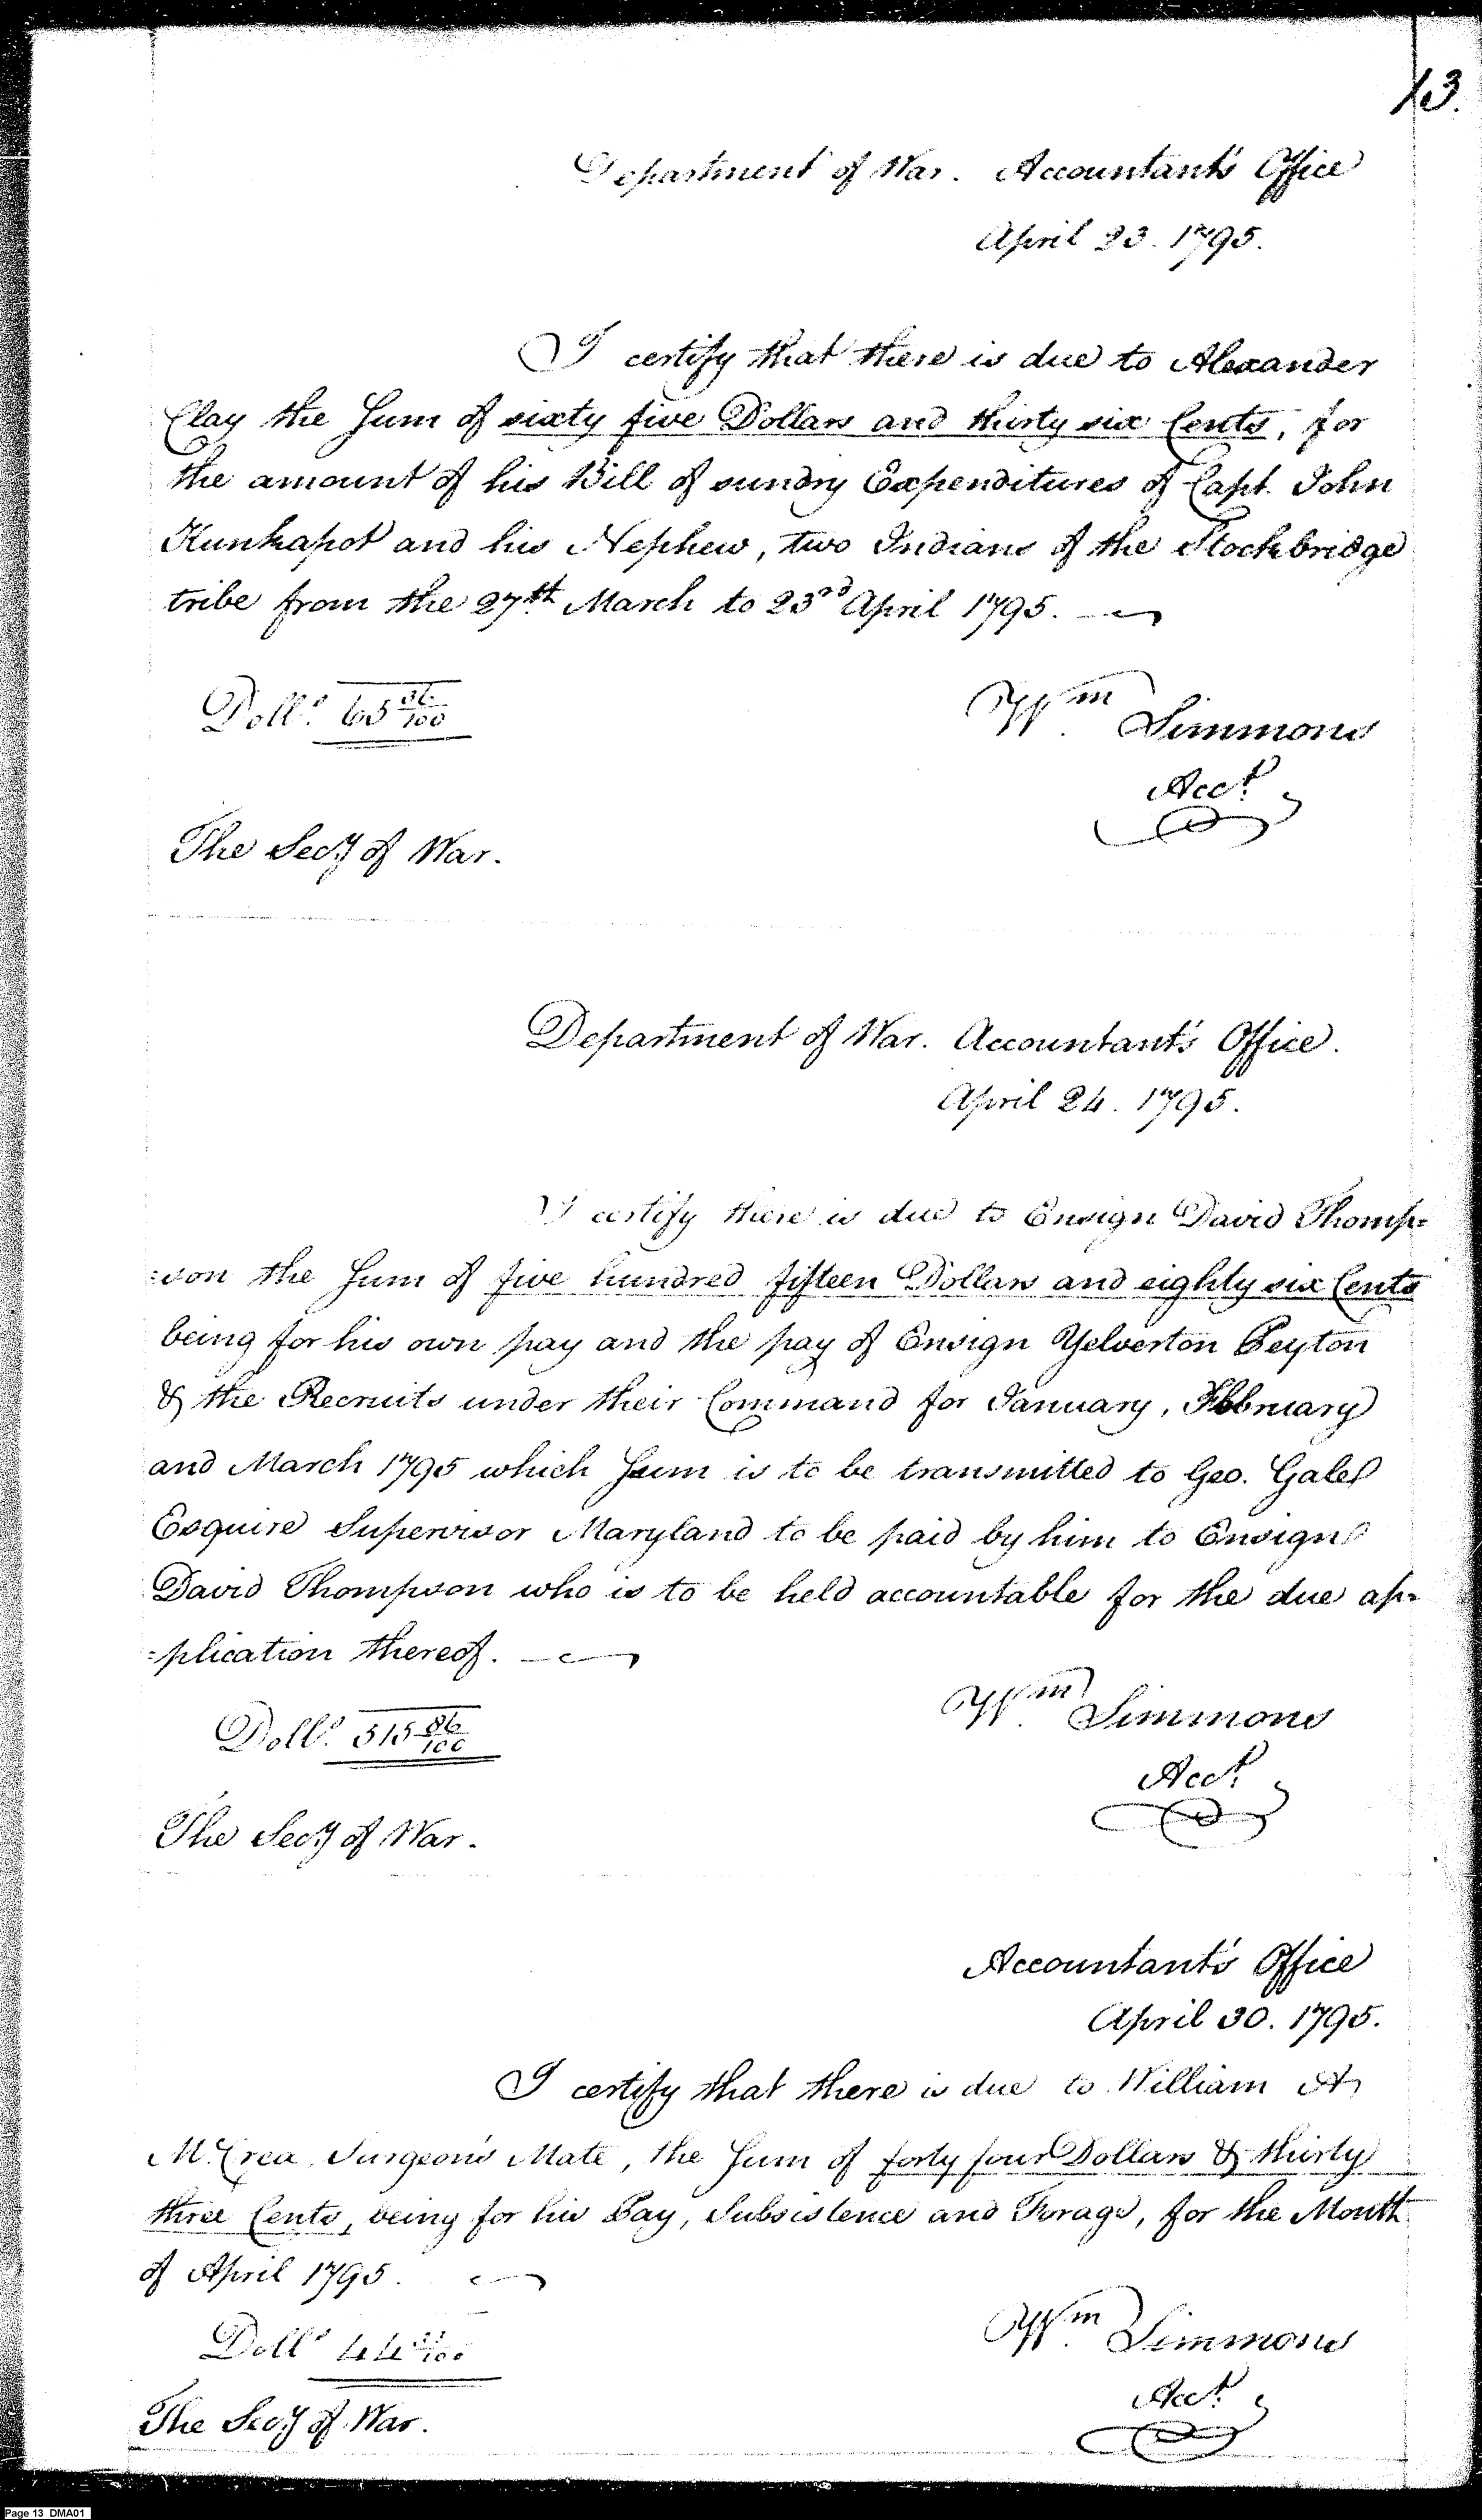 13.
Department of War. Accountant's Office
April 23. 1795.
I certify that there is due to Alexander
Clay the Sum of sixty five Dollars and thirty six Cents, for
the amount of his Bill of sundry Expenditures of Capt. John
Kunkapot and his Nephew, two Indians of the Stockbridge
tribe from the 27th March to 23rd April 1795.
Dolls. 65 36/100
Wm Simmons
Acct.
The Secy of War.
Department of War. Accountant's Office.
April 24. 1795.
I certify there is due to Ensign David Thomp=
=son the Sum of five hundred fifteen Dollars and eighty six Cents
being for his own pay and the pay of Ensign Yelverton Peyton
& the Recruits under their Command for January, February
and March 1795 which Sum is to be transmitted to Geo. Gale
Esquire Supervisor Maryland to be paid by him to Ensign
David Thompson who is to be held accountable for the due ap=
=plication thereof.
Dolls. 515 86/100
Wm Simmons
Acct.
The Secy of War.
Accountant's Office
April 30. 1795.
I certify that there is due to William A
M.Crea Surgeon's Mate, the Sum of forty four Dollars & thirty
three Cents, being for his Pay, Subsistence and Forage, for the Month
of April 1795.
Dolls 44 33/100
Wm Simmons
Acct.
The Secy of War.
Page 13 DMA01